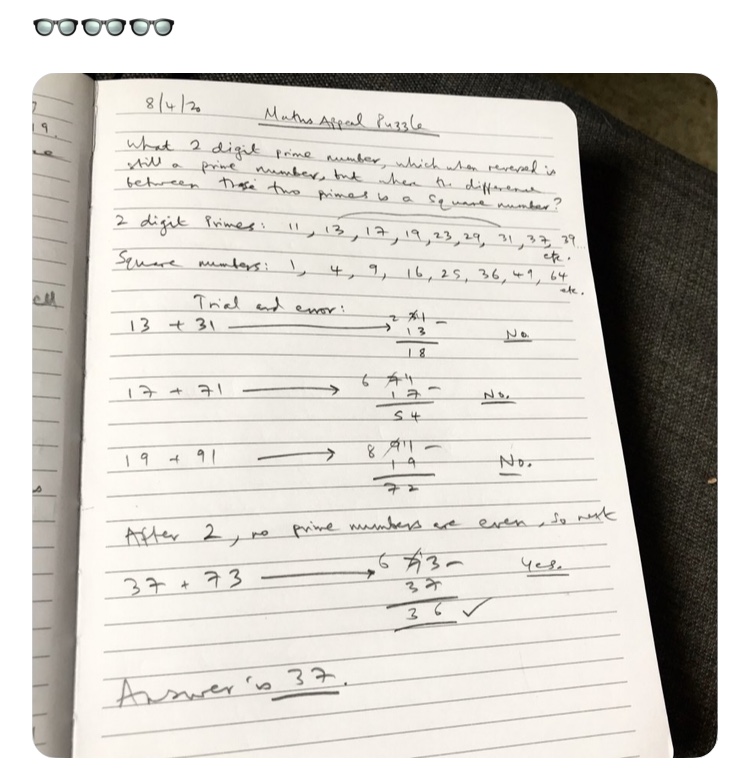 8/4/20 Maths Appeal Puzzle
What 2 digit prime number, which when reversed is
still a prime number, but when the difference
between those two primes is a square number?
2 digit Primes: 11, 13, 17, 19, 23, 29, 31, 37, 39...
etc.
Square numbers: 1, 4, 9, 16, 25, 36, 49, 64
etc.
Trial and error:
13 + 31 → 31 −
13 No
18
17 + 71 → 71 −
17 No.
54
19 + 91 → 91 −
19 No.
72
After 2, no prime numbers are even, so next
37 + 73 → 73 − Yes.
37
36 ✓
Answer is 37.